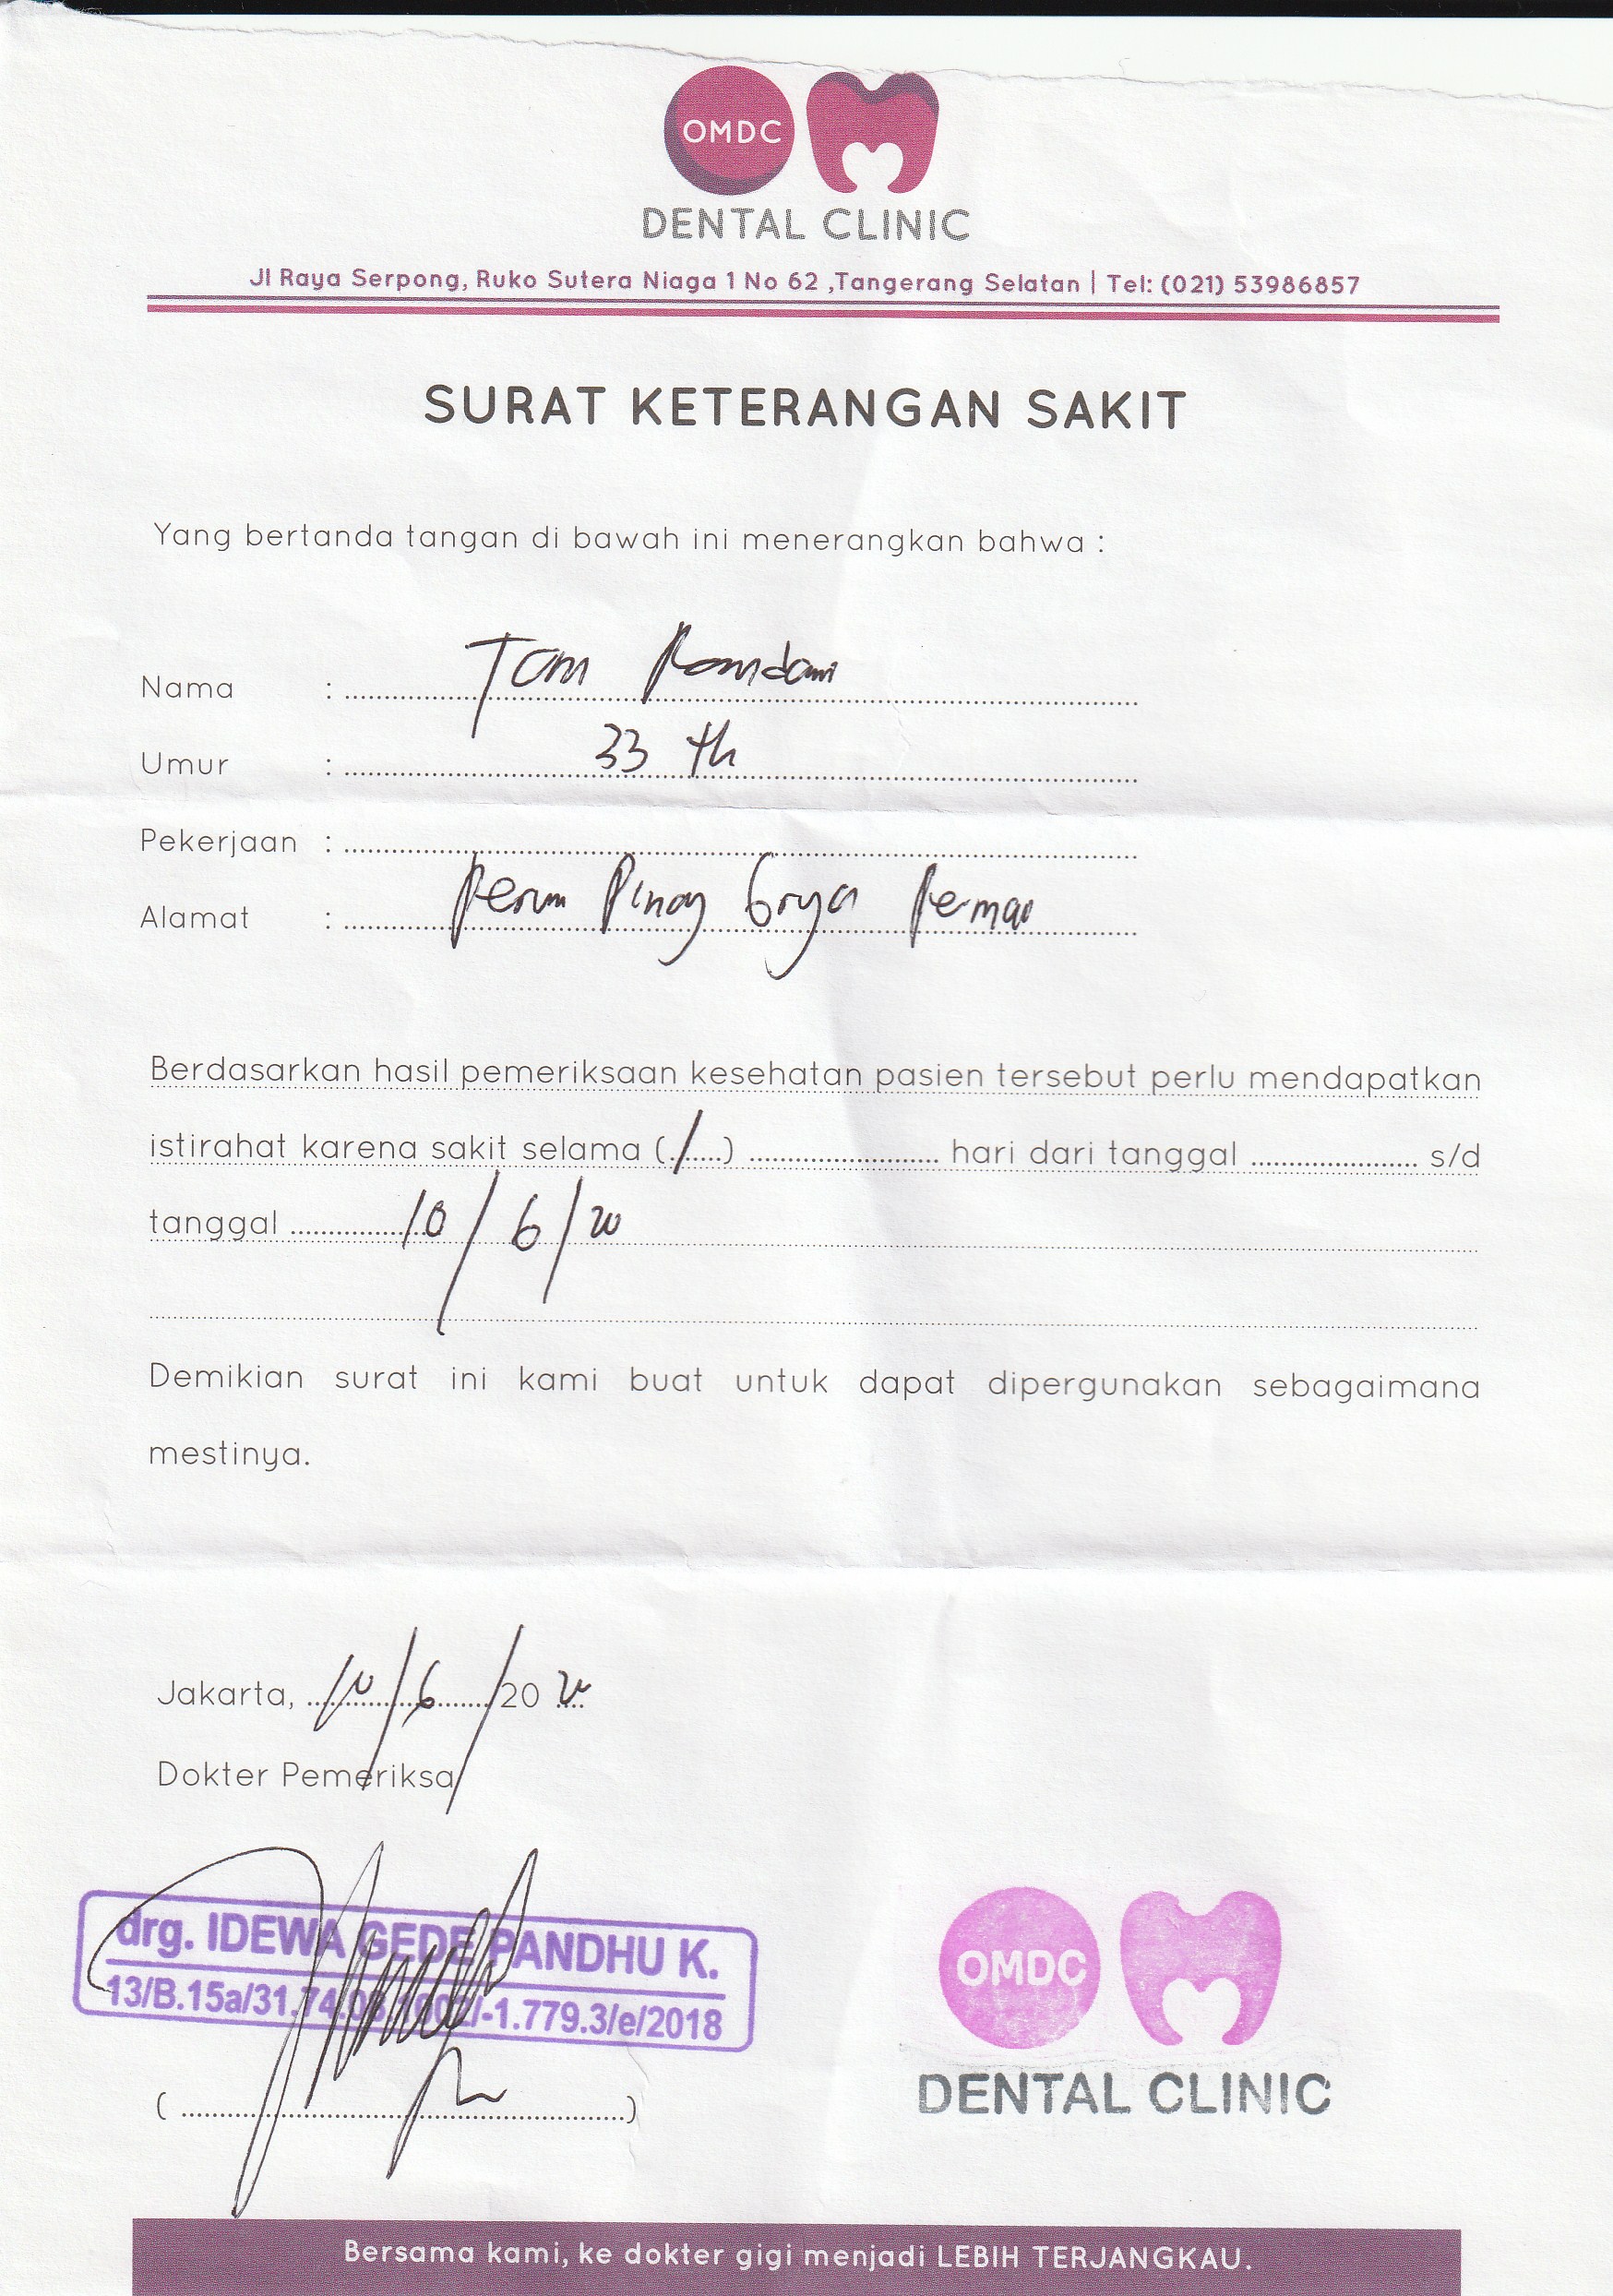 OMDC
DENTAL CLINIC
Jl Raya Serpong, Ruko Sutera Niaga 1 No 62 ,Tangerang Selatan | Tel: (021) 53986857
SURAT KETERANGAN SAKIT
Yang bertanda tangan di bawah ini menerangkan bahwa :
Nama :
Umur : 33 th
Pekerjaan :
Alamat : Perum Pinang Grya Permai
Berdasarkan hasil pemeriksaan kesehatan pasien tersebut perlu mendapatkan
istirahat karena sakit selama (1) hari dari tanggal s/d
tanggal 10/6/20
Demikian surat ini kami buat untuk dapat dipergunakan sebagaimana
mestinya.
Jakarta, 10/6/20 20
Dokter Pemeriksa
drg. IDEWA GEDE PANDHU K.
-1.779.3/e/2018
OMDC
DENTAL CLINIC
( )
Bersama kami, ke dokter gigi menjadi LEBIH TERJANGKAU.